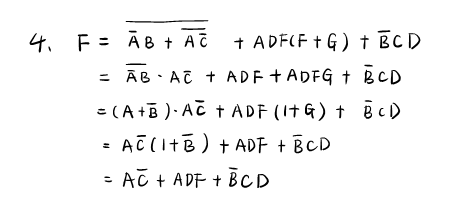 4. F = \overline{\overline{A}B + \overline{A\overline{C}}} + ADF(F+G) + \overline{B}CD
= \overline{\overline{A}B} · A\overline{C} + ADF + ADFG + \overline{B}CD
= (A+\overline{B})·A\overline{C} + ADF(1+G) + \overline{B}CD
= A\overline{C}(1+\overline{B}) + ADF + \overline{B}CD
= A\overline{C} + ADF + \overline{B}CD